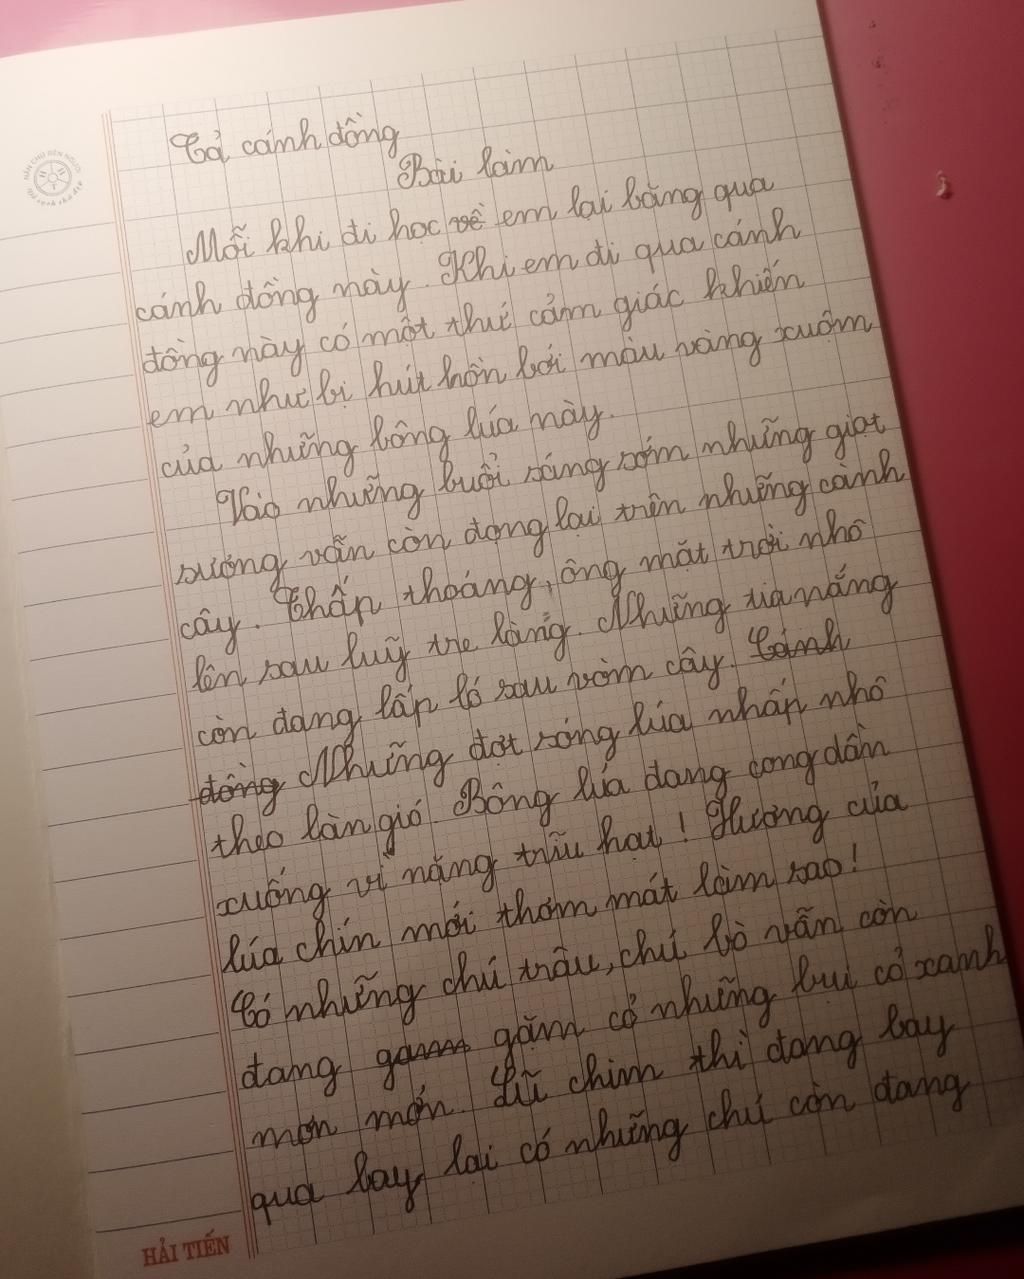 Tả cánh đồng
Bài làm
Mỗi khi đi học về em lại băng qua
cánh đồng này. Khi em đi qua cánh
đồng này có một thứ cảm giác khiến
em như bị hút hồn bởi màu vàng xuộm
của những bông lúa này.
Vào những buổi sáng sớm những giọt
sương vẫn còn đọng lại trên những cành
cây. Thấp thoáng, ông mặt trời nhô
lên sau luỹ tre làng. Những tia nắng
còn đang lấp ló sau vòm cây. Cánh
đồng Những đợt sóng lúa nhấp nhô
theo làn gió. Bông lúa đang cong dần
xuống vì nặng trĩu hạt! Hương của
lúa chín mới thơm mát làm sao!
Có những chú trâu, chú bò vẫn còn
đang gam gặm cỏ những bụi cỏ xanh
mơn mởn. Lũ chim thì đang bay
qua bay lại có những chú còn đang
HẢI TIẾN